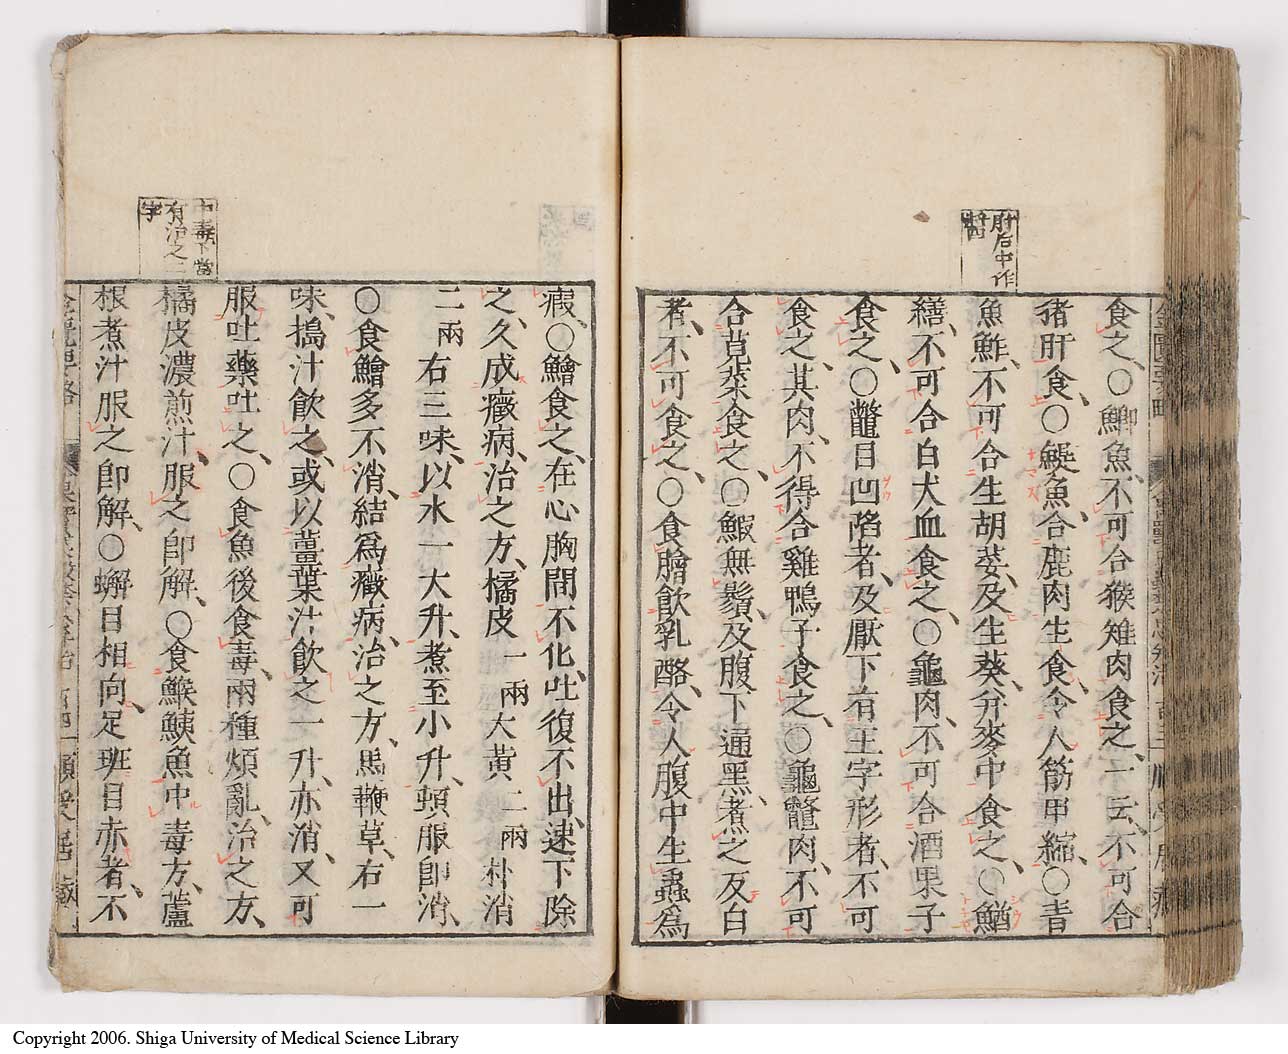 肝后中作
食之、○鯽魚、不可合猴雉肉食之、一云、不可合
猪肝食、○鯷魚合鹿肉生食、令人筋甲縮、○青
魚鮓、不可合生胡荽、及生葵、并麥中食之、○鰌
鱔、不可合白犬血食之、○龜肉、不可合酒果子
食之、○鼈目凹陷者、及厭下有王字形者、不可
食之、其肉、不得合雞鴨子食之、○龜鼈肉、不可
合莧菜食之、○鰕無鬚、及腹下通黑、煮之反白
者、不可食之、○食膾飲乳酪、令人腹中生蟲爲
瘕、○鱠食之、在心胸間不化、吐復不出、速下除
之、久成癥病、治之方、橘皮一兩大黃二兩朴消
二兩右三味、以水一大升、煮至小升、頓服即消、
○食鱠多不消、結爲癥病、治之方、馬鞭草、右一
味、搗汁飲之、或以薑葉汁飲之一升、亦消、又可
服吐藥吐之、○食魚後食毒、兩種煩亂、治之方、
橘皮濃煎汁、服之即解、○食鯸鮧魚中毒方、蘆
根煮汁服之即解、○蠏目相向、足班目赤者、不
中毒下當
有治之二
字
Copyright 2006. Shiga University of Medical Science Library